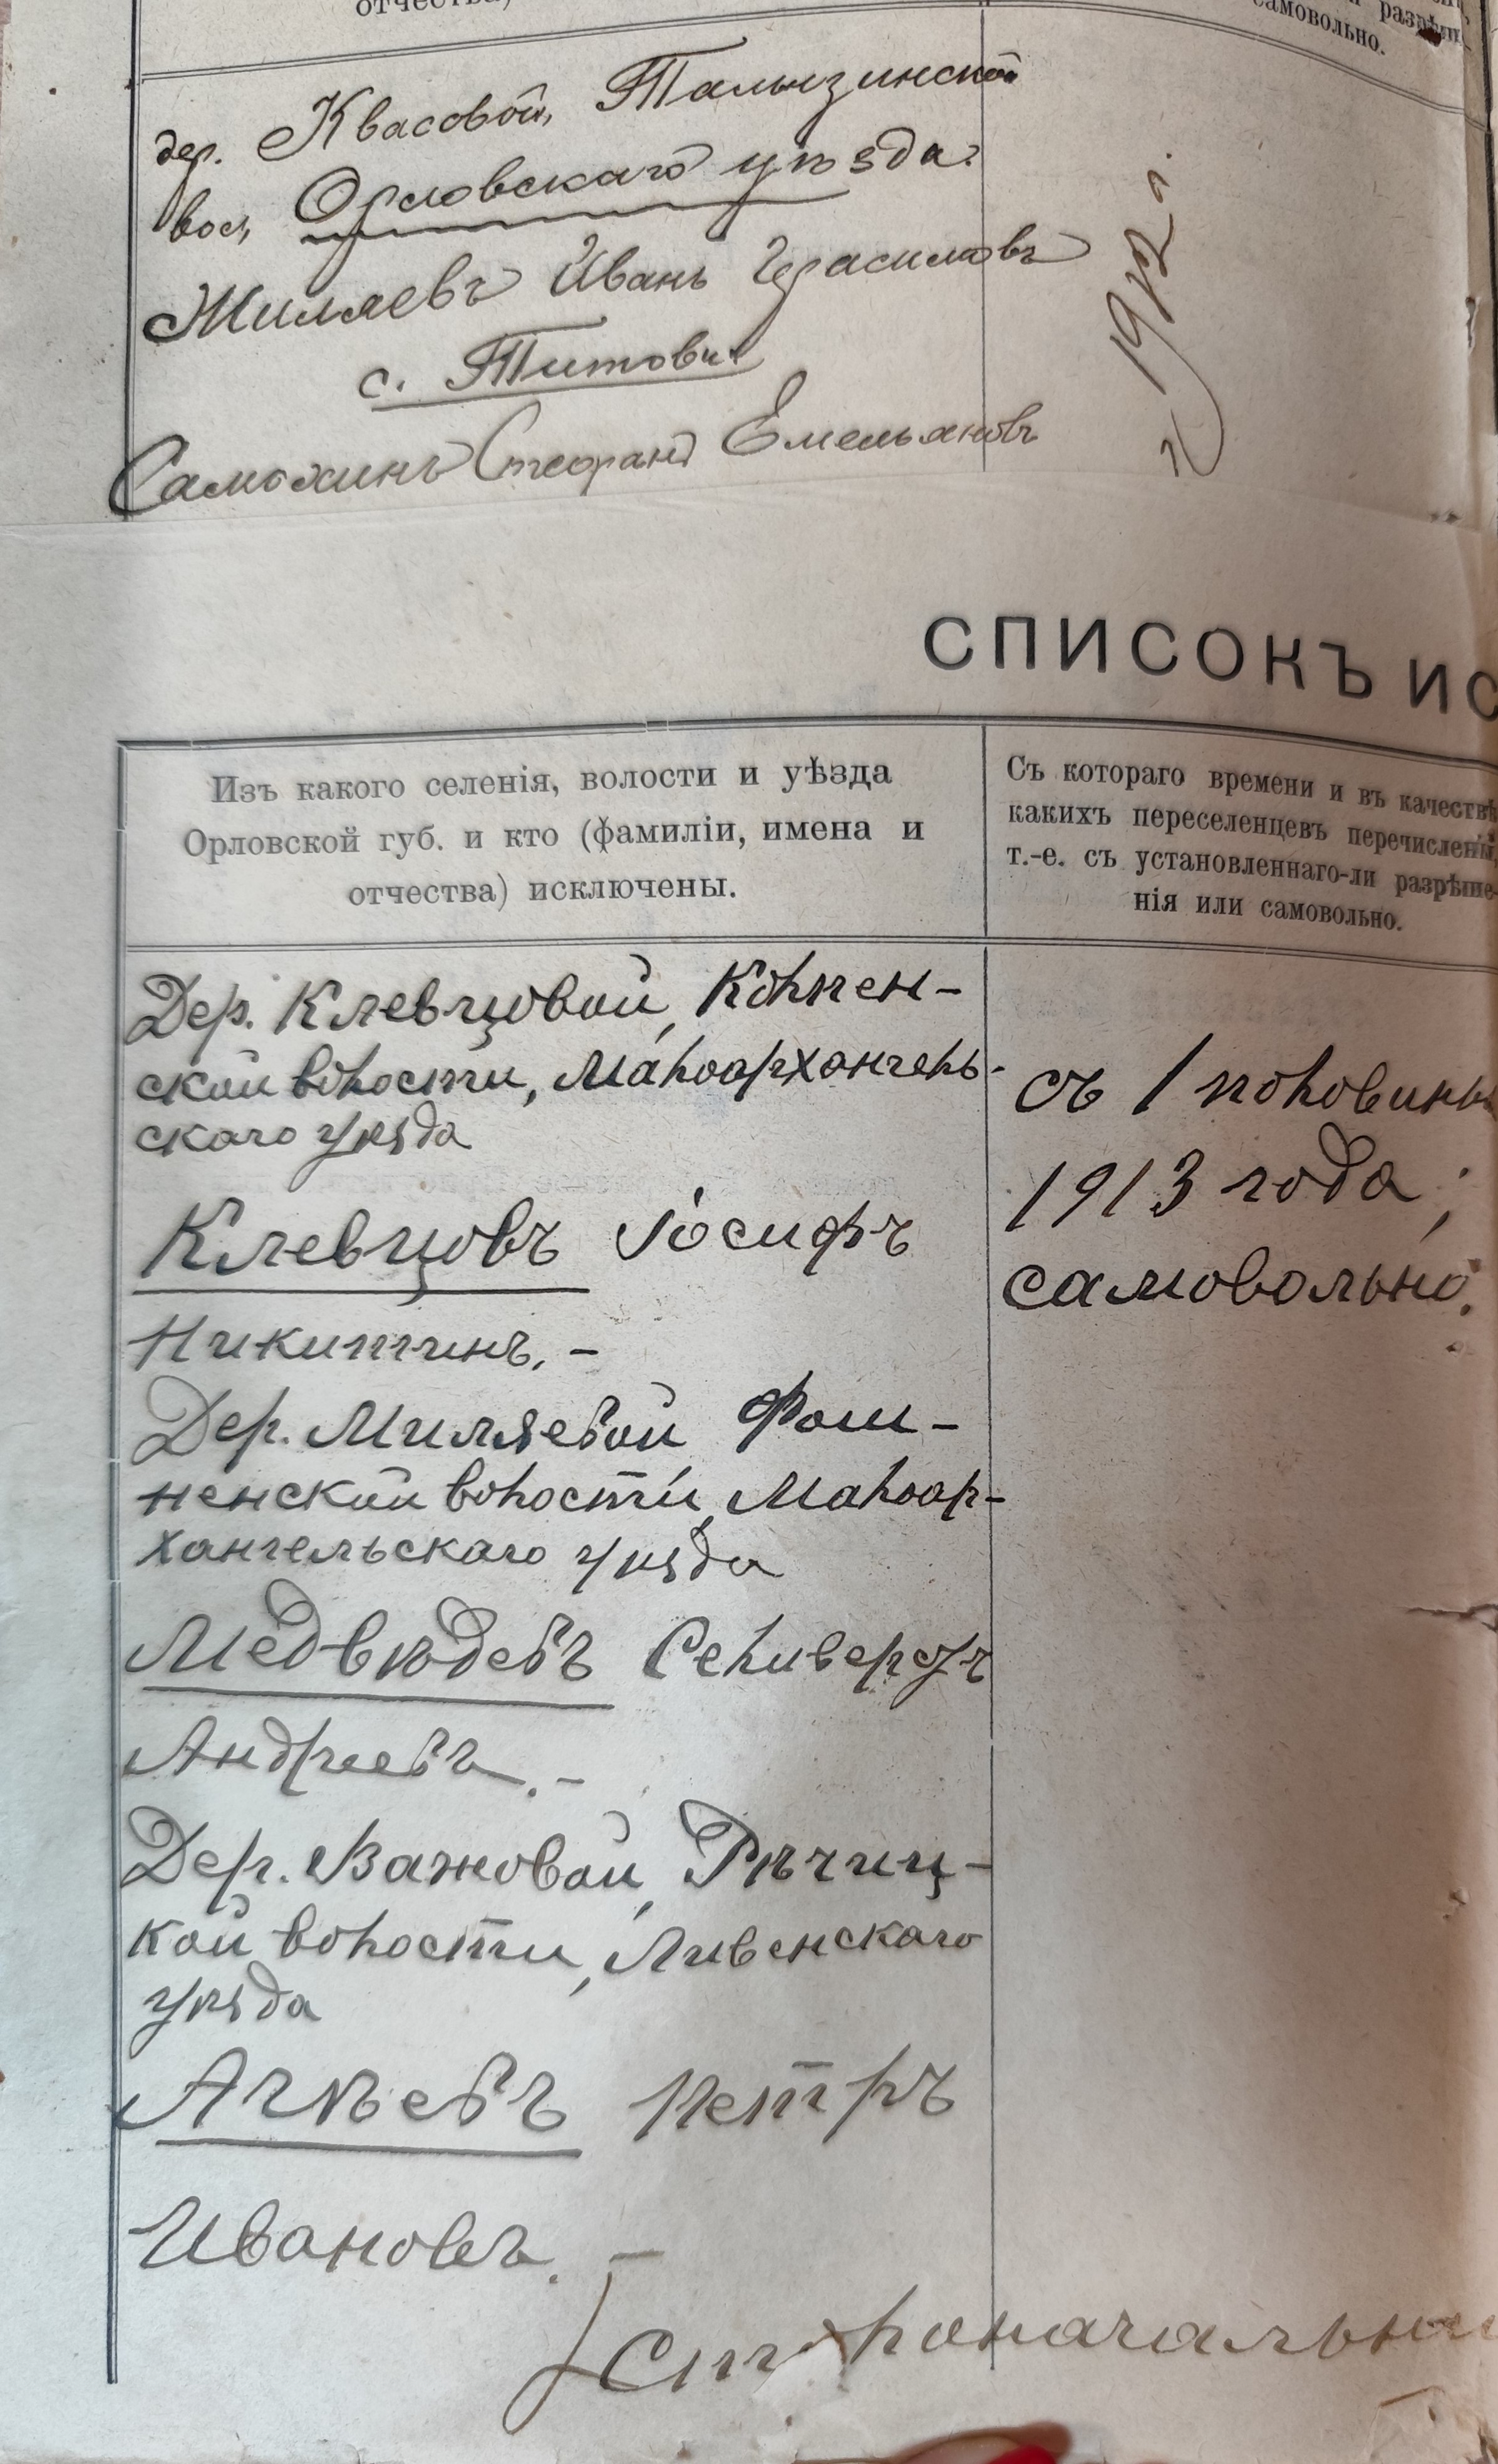 отчества)
разрѣш
самовольно.
дер. Квасовой, Талызинской
вол, Орловскаго уѣзда.
Жиляевъ Иванъ Герасимовъ
с. Титова
Самохинъ Стефанъ Емельяновъ
1912 г.
СПИСОКЪ ИС
Изъ какого селенія, волости и уѣзда
Орловской губ. и кто (фамиліи, имена и
отчества) исключены.
Съ котораго времени и въ качествѣ
какихъ переселенцевъ перечислены,
т.-е. съ установленнаго-ли разрѣше-
нія или самовольно.
Дер. Клевцовой, Колпен-
ской волости, Малоархангель-
скаго уѣзда
Клевцовъ Іосифъ
Никитинъ. –
съ 1 половины
1913 года;
самовольно.
Дер. Миляевой Фош-
ненской волости, Малоар-
хангельскаго уѣзда
Медвѣдевъ Селиверстъ
Андреевъ. –
Дер. Важовой, Рѣчиц-
кой волости, Ливенскаго
уѣзда
Агѣевъ Петръ
Ивановъ. –
Столоначальни